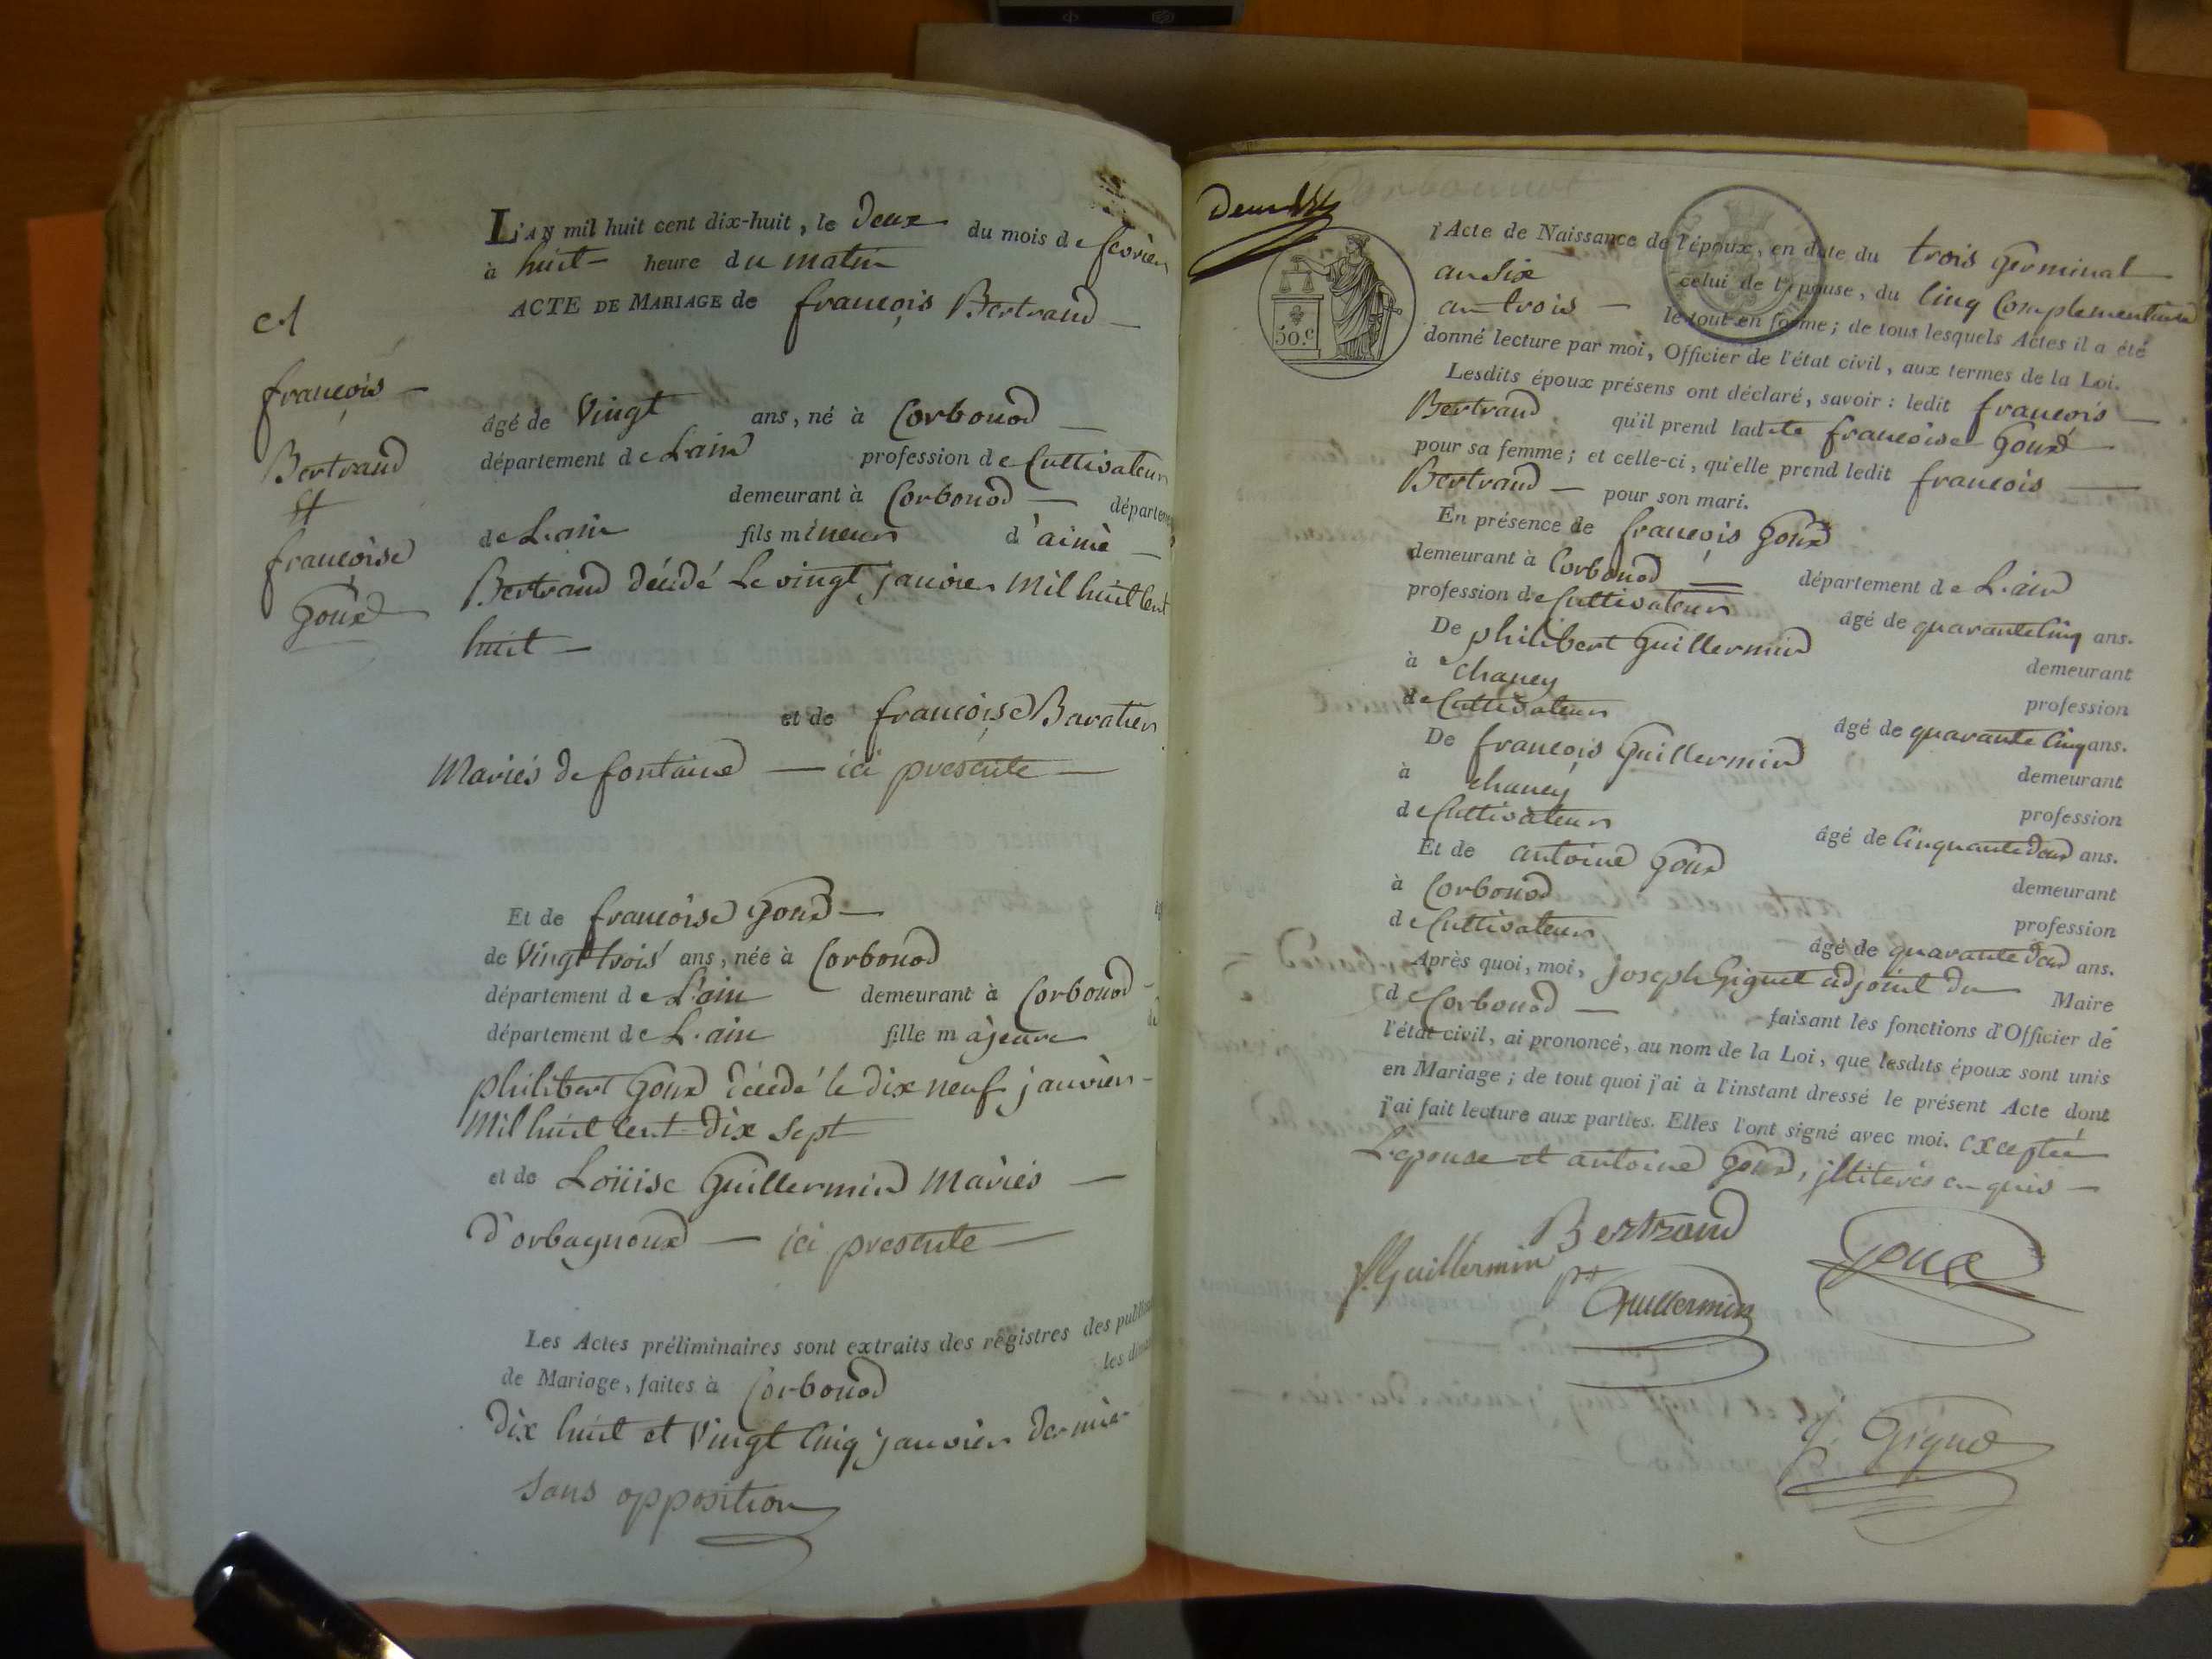 L'AN mil huit cent dix-huit, le deux du mois de fevrier
à huit heure du matin
ACTE DE MARIAGE de françois Bertrand
françois
Bertrand
et
françoise
Goux
âgé de Vingt ans, né à Corbonod
département de L'ain profession de Cultivateur
demeurant à Corbonod départem
de L'ain fils mineur d'aimé
Bertrand décédé Le vingt janvier mil huit cent
huit
et de françoise Baratier
mariés de fontaine ici presente
Et de françoise Goux
de Vingt trois ans, née à Corbonod
département de L'ain demeurant à Corbonod
département de L'ain fille majeure
philibert Goux décédé le dix neuf janvier
mil huit cent dix sept
et de Loüise Guillermin mariés
d'orbagnoux ici presente
Les Actes préliminaires sont extraits des régistres des public
de Mariage, faites à Corbonod les dima
dix huit et Vingt cinq janvier dernier
sans opposition
deux
50.c
l'Acte de Naissance de l'époux, en date du trois germinal
an six celui de l'épouse, du cinq Complementaire
an trois le tout en forme; de tous lesquels Actes il a été
donné lecture par moi, Officier de l'état civil, aux termes de la Loi.
Lesdits époux présens ont déclaré, savoir: ledit françois
Bertrand qu'il prend ladite françoise Goux
pour sa femme; et celle-ci, qu'elle prend ledit françois
Bertrand pour son mari.
En présence de françois Goux
demeurant à Corbonod département de L'ain
profession de Cultivateur âgé de quarante cinq ans.
De philibert Guillermin demeurant
à chaney profession
de Cultivateur âgé de quarante cinq ans.
De françois Guillermin demeurant
à chaney profession
de Cultivateur âgé de cinquante deux ans.
Et de antoine Goux demeurant
à Corbonod profession
de Cultivateur âgé de quarante deux ans.
Après quoi, moi, joseph Gignet adjoint du Maire
de Corbonod faisant les fonctions d'Officier de
l'état civil, ai prononcé, au nom de la Loi, que lesdits époux sont unis
en Mariage; de tout quoi j'ai à l'instant dressé le présent Acte dont
j'ai fait lecture aux parties. Elles l'ont signé avec moi. exceptée
L'epouse et antoine Goux, illiterés enquis
Bertrand
f. Guillermin Goux
pt Guillermin
J. Gignet